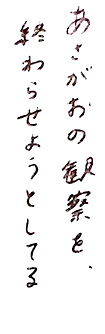 あさがおの観察を、
終わらせようとしてる